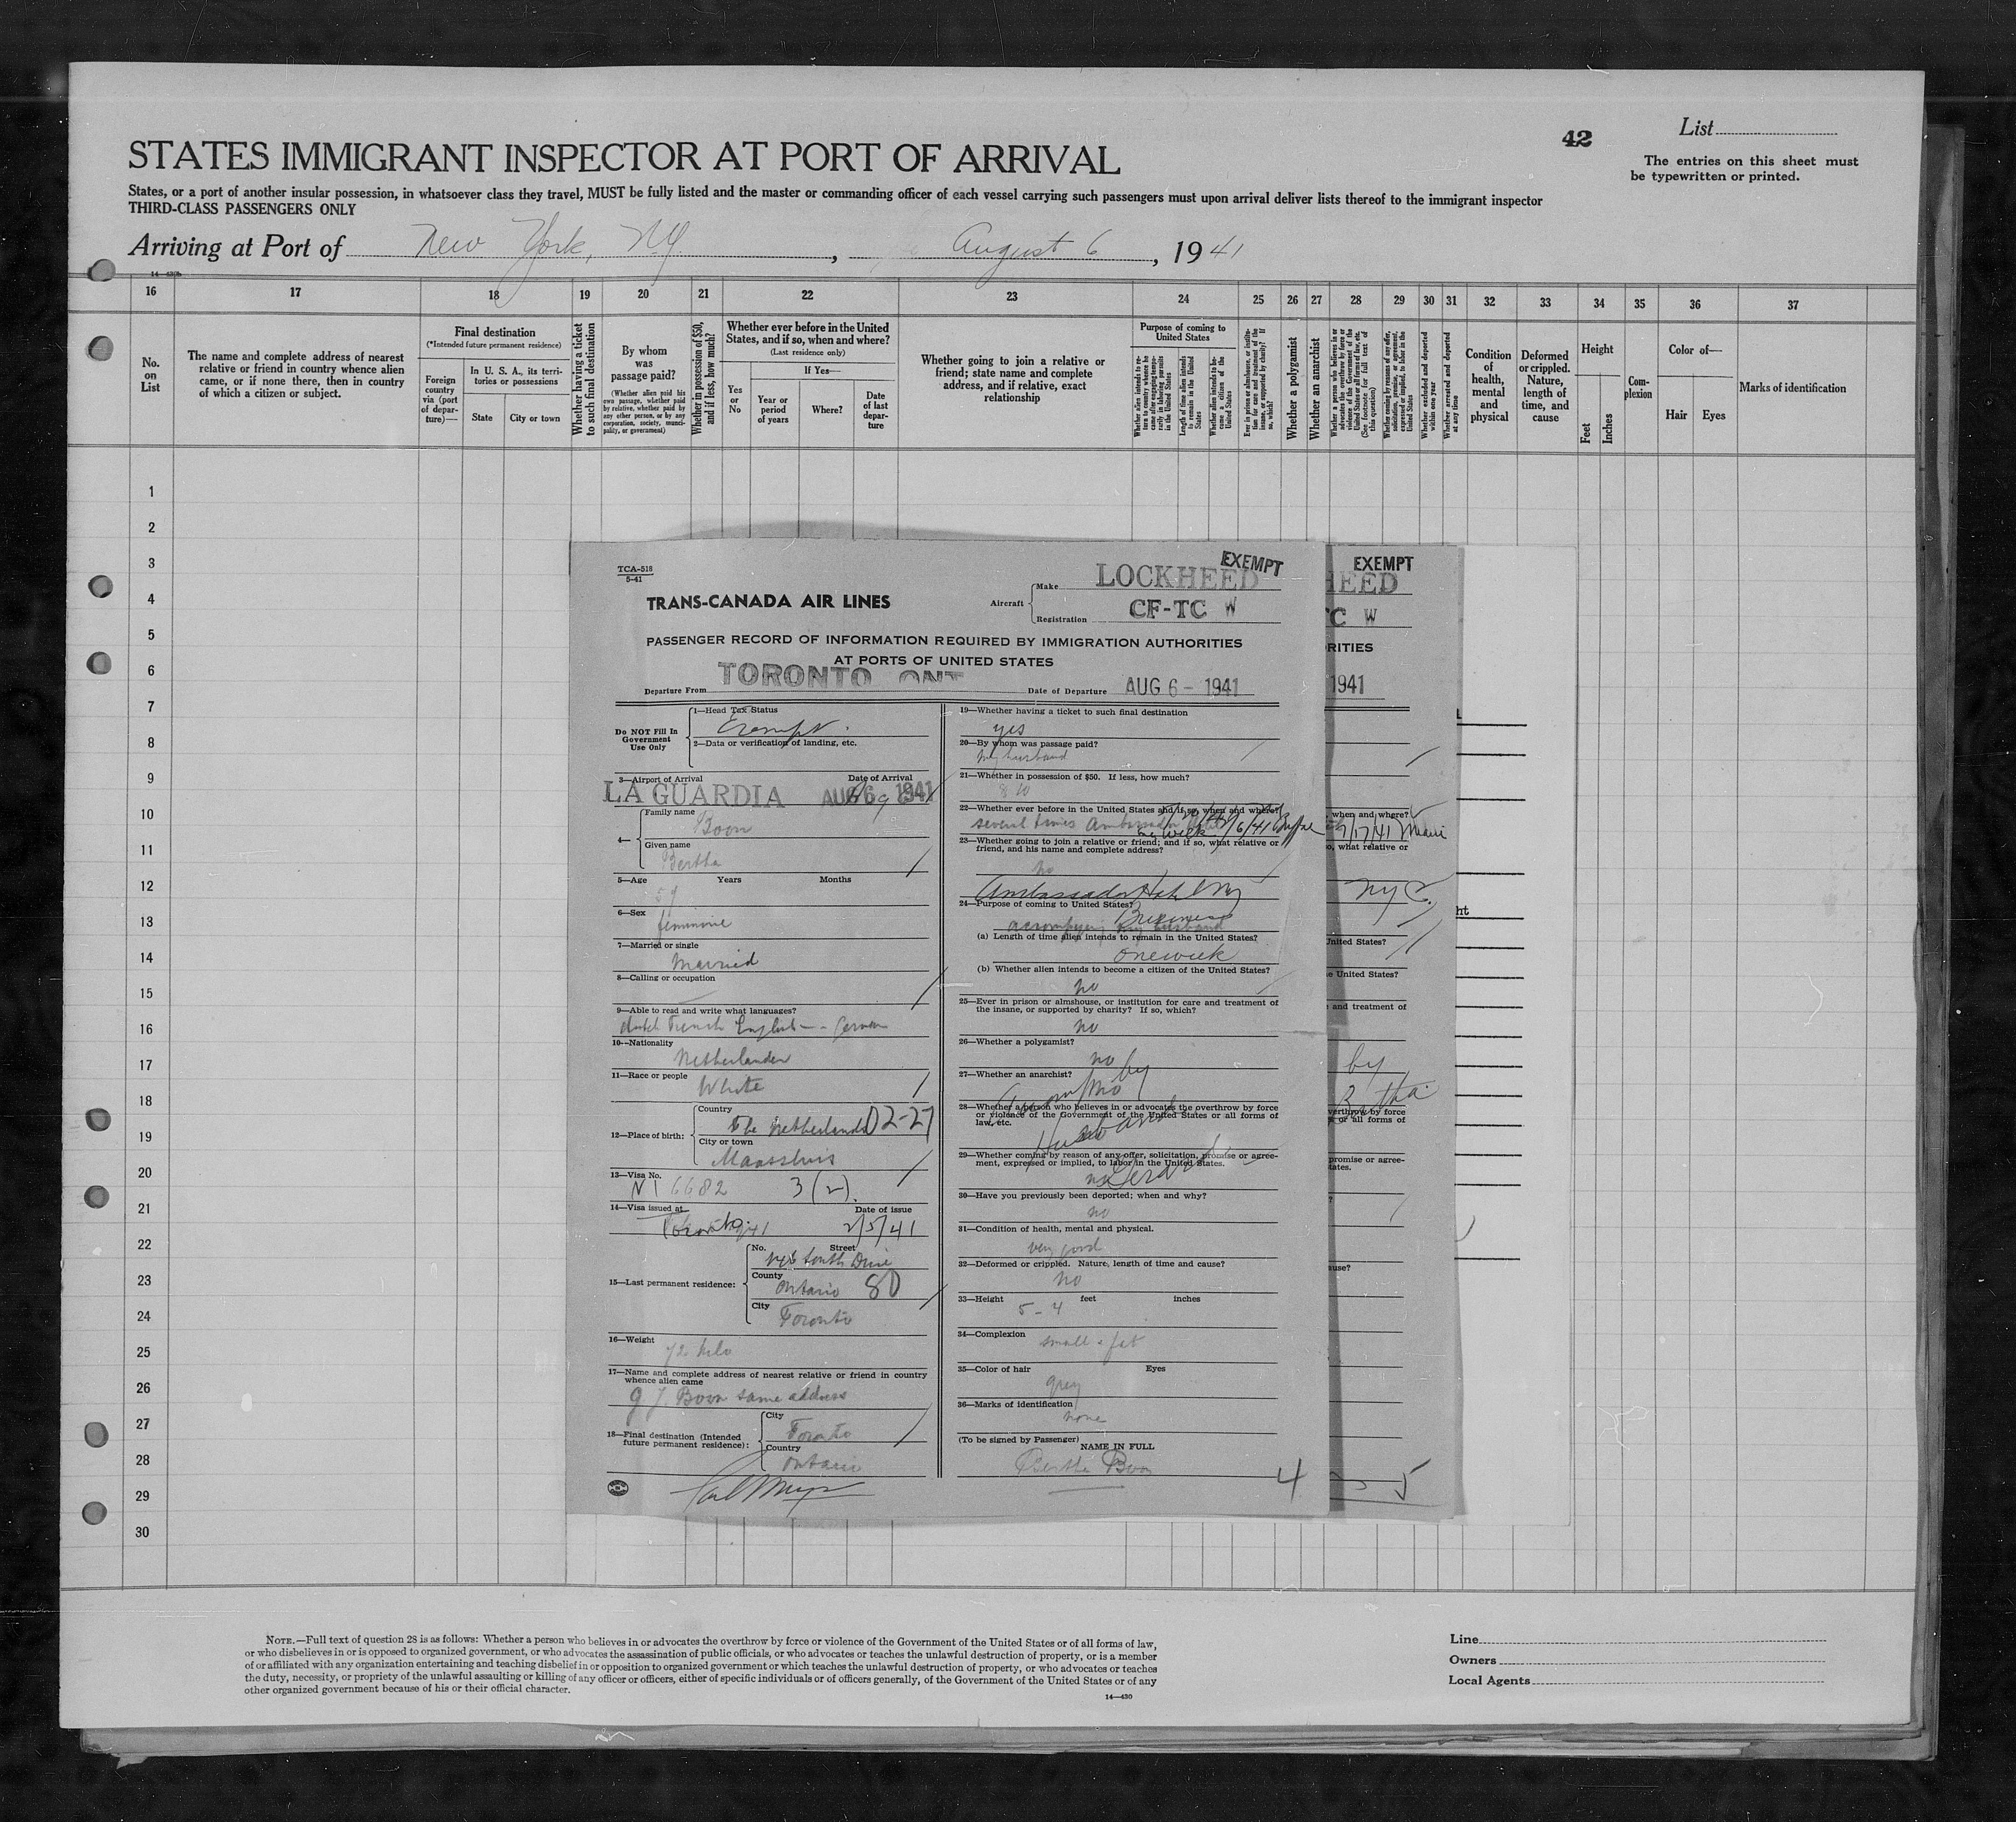 42
List
The entries on this sheet must
be typewritten or printed.
STATES IMMIGRANT INSPECTOR AT PORT OF ARRIVAL
States, or a port of another insular possession, in whatsoever class they travel, MUST be fully listed and the master or commanding officer of each vessel carrying such passengers must upon arrival deliver lists thereof to the immigrant inspector
THIRD-CLASS PASSENGERS ONLY
Arriving at Port of New York, NY, August 6, 1941
14—430b
16 17 18 19 20 21 22 23 24 25 26 27 28 29 30 31 32 33 34 35 36 37
No. on List
The name and complete address of nearest
relative or friend in country whence alien
came, or if none there, then in country
of which a citizen or subject.
Final destination
(*Intended future permanent residence)
Foreign country via (port of departure)—
In U. S. A., its territories or possessions
State
City or town
Whether having a ticket to such final destination
By whom was passage paid?
(Whether alien paid his own passage, whether paid by relative, whether paid by any other person, or by any corporation, society, municipality, or government)
Whether in possession of $50, and if less, how much?
Whether ever before in the United
States, and if so, when and where?
(Last residence only)
Yes or No
If Yes—
Year or period of years
Where?
Date of last departure
Whether going to join a relative or
friend; state name and complete
address, and if relative, exact
relationship
Purpose of coming to United States
Length of time alien intends to remain in the United States
Whether alien intends to become a citizen of the United States
Whether a polygamist
Whether an anarchist
Whether excluded and deported within one year
Whether arrested and deported at any time
Condition of health, mental and physical
Deformed or crippled. Nature, length of time, and cause
Height
Feet
Inches
Complexion
Color of—
Hair
Eyes
Marks of identification
1
2
3
4
5
6
7
8
9
10
11
12
13
14
15
16
17
18
19
20
21
22
23
24
25
26
27
28
29
30
TCA-518
5-41
EXEMPT
TRANS-CANADA AIR LINES
Aircraft
Make LOCKHEED
Registration CF-TC W
PASSENGER RECORD OF INFORMATION REQUIRED BY IMMIGRATION AUTHORITIES
AT PORTS OF UNITED STATES
Departure From TORONTO ONT
Date of Departure AUG 6 - 1941
Do NOT Fill In
Government
Use Only
1—Head Tax Status
Exempt.
2—Data or verification of landing, etc.
3—Airport of Arrival
Date of Arrival
LA GUARDIA AUG 6 1941
4—
Family name
Boon
Given name
Bertha
5—Age Years Months
59
6—Sex
feminine
7—Married or single
Married
8—Calling or occupation
9—Able to read and write what languages?
dutch French English - - German
10—Nationality
Netherlander
11—Race or people
White
12—Place of birth:
Country
The Netherlands 02-27
City or town
Maassluis
13—Visa No.
6682 3(2).
14—Visa issued at Date of issue
Toronto 2/5/41
15—Last permanent residence:
No. Street
South Drive
County
Ontario 80
City
Toronto
16—Weight
72 kilo
17—Name and complete address of nearest relative or friend in country
whence alien came
G J Boon same address
18—Final destination (Intended
future permanent residence):
City
Toronto
Country
Ontario
19—Whether having a ticket to such final destination
yes
20—By whom was passage paid?
My husband
21—Whether in possession of $50. If less, how much?
22—Whether ever before in the United States and if so, when and where?
several times Ambassador
23—Whether going to join a relative or friend; and if so, what relative or
friend, and his name and complete address?
no
Ambassador Hotel NY
24—Purpose of coming to United States?
Business
accompying my husband
(a) Length of time alien intends to remain in the United States?
one week
(b) Whether alien intends to become a citizen of the United States?
no
25—Ever in prison or almshouse, or institution for care and treatment of
the insane, or supported by charity? If so, which?
no
26—Whether a polygamist?
no
27—Whether an anarchist?
no
by
28—Whether a person who believes in or advocates the overthrow by force
or violence of the Government of the United States or all forms of
law, etc.
Husband
29—Whether coming by reason of any offer, solicitation, promise or agree-
ment, expressed or implied, to labor in the United States.
no
Gerard
30—Have you previously been deported; when and why?
no
31—Condition of health, mental and physical.
very good
32—Deformed or crippled. Nature, length of time and cause?
no
33—Height feet inches
5 - 4
34—Complexion
small & fat
35—Color of hair Eyes
grey
36—Marks of identification
none
(To be signed by Passenger)
NAME IN FULL
Bertha Boon
4
EXEMPT
HEED
TC W
RITIES
1941
when and where?
7/17/41 Miami
o, what relative or
NYC.
United States?
e United States?
and treatment of
by
Bertha
verthrow by force
or all forms of
promise or agree-
tates.
ause?
5
ht
NOTE.—Full text of question 28 is as follows: Whether a person who believes in or advocates the overthrow by force or violence of the Government of the United States or of all forms of law,
or who disbelieves in or is opposed to organized government, or who advocates the assassination of public officials, or who advocates or teaches the unlawful destruction of property, or is a member
of or affiliated with any organization entertaining and teaching disbelief in or opposition to organized government or which teaches the unlawful destruction of property, or who advocates or teaches
the duty, necessity, or propriety of the unlawful assaulting or killing of any officer or officers, either of specific individuals or of officers generally, of the Government of the United States or of any
other organized government because of his or their official character.
14—430
Line
Owners
Local Agents